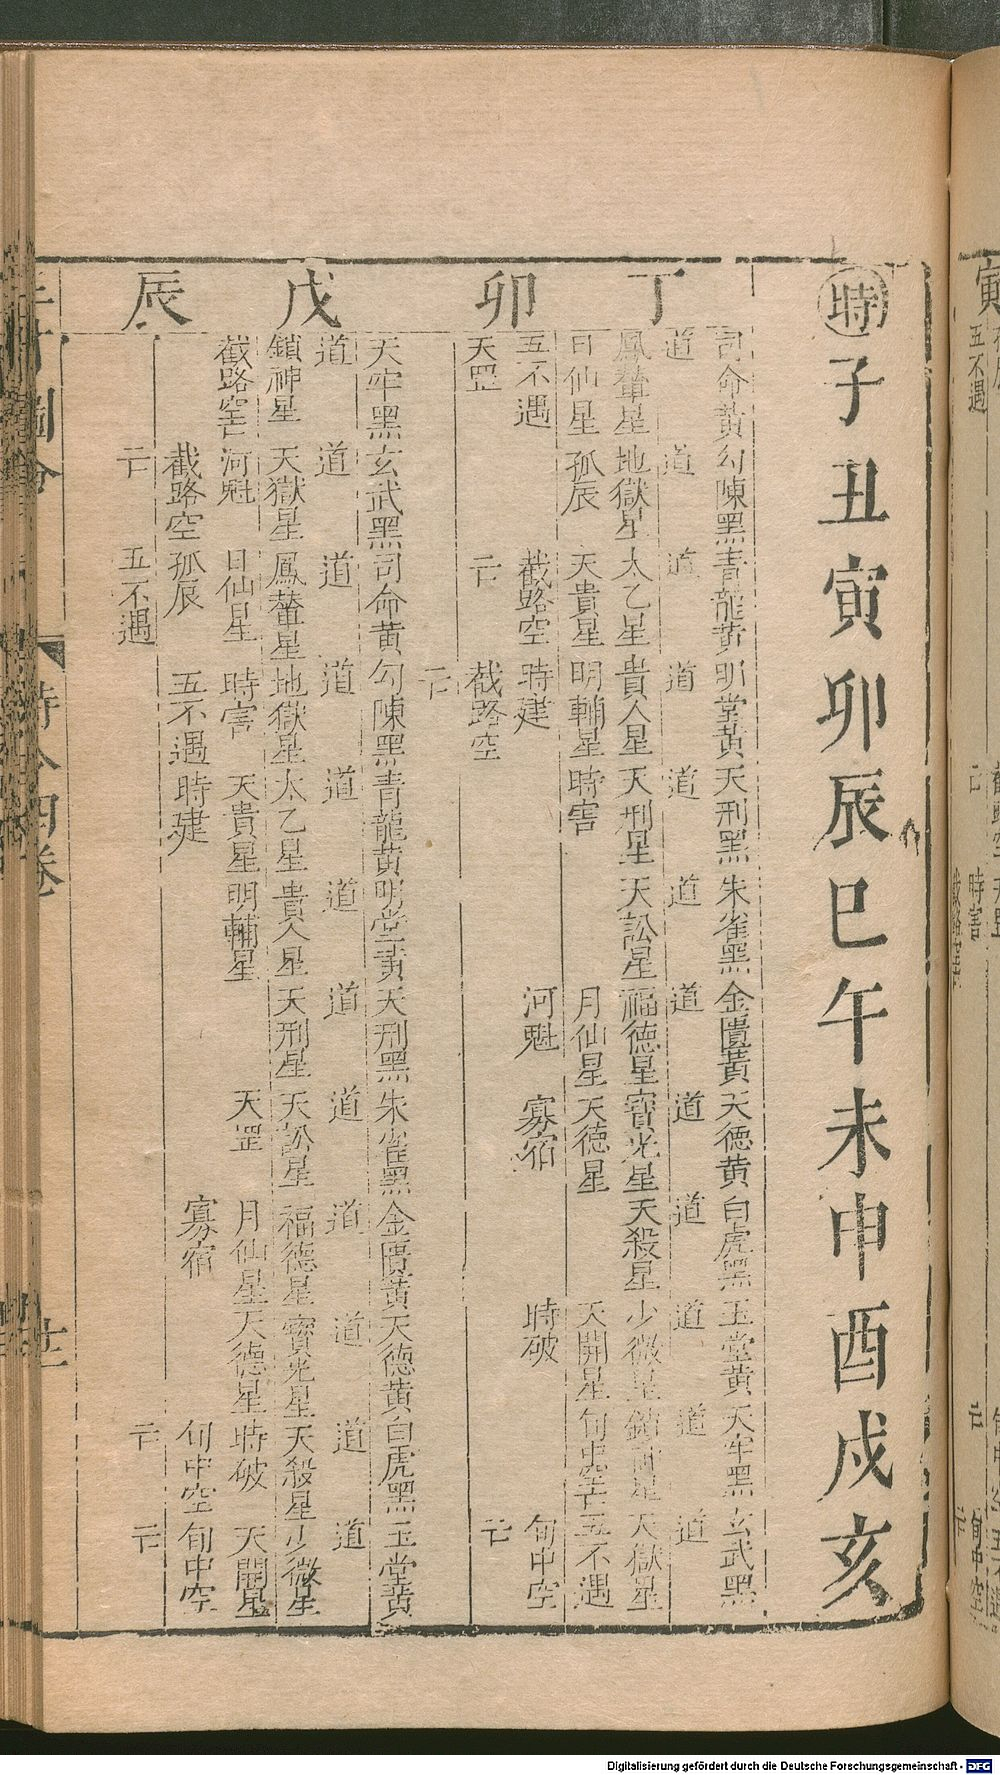 時子丑寅卯辰巳午未申酉戌亥
丁卯
司命黃勾陳黑青龍黃明堂黃天刑黑朱雀黑金匱黃天德黃白虎黑玉堂黃天牢黑玄武黑
道道道道道道道道道道道道
鳳輦星地獄星太乙星貴人星天刑星天訟星福德星寶光星天殺星少微星鎖神星天獄星
日仙星孤辰天貴星明輔星時害月仙星天德星天開星旬中空亡五不遇
五不遇截路空時建河魁寡宿時破旬中空
天罡亡截路空亡
亡
戊辰
天牢黑玄武黑司命黃勾陳黑青龍黃明堂黃天刑黑朱雀黑金匱黃天德黃白虎黑玉堂黃
道道道道道道道道道道道道
鎖神星天獄星鳳輦星地獄星太乙星貴人星天刑星天訟星福德星寶光星天殺星少微星
截路空亡河魁日仙星時害天貴星明輔星天罡月仙星天德星時破天開星
截路空孤辰五不遇時建寡宿旬中空旬中空
亡五不遇亡亡
時令四卷
廿一
寅
五不遇
時害
旬中空
Digitalisierung gefördert durch die Deutsche Forschungsgemeinschaft - DFG